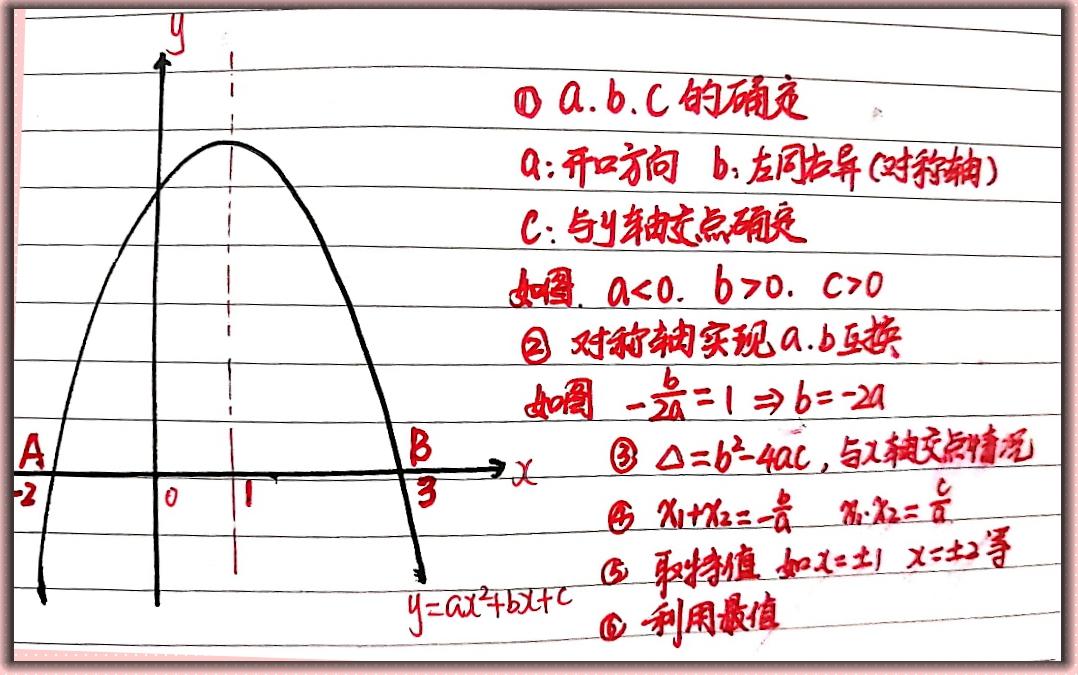 y
① a.b.c 的确定
a:开口方向 b:左同右异(对称轴)
c:与y轴交点确定
如图. a<0. b>0. c>0
② 对称轴实现a.b互换
如图 -b/2a=1⇒b=-2a
A
B
③ Δ=b²-4ac,与x轴交点情况
x
-2
0
1
3
④ x₁+x₂=-b/a x₁·x₂=c/a
⑤ 取特值 如x=±1 x=±2等
y=ax²+bx+c
⑥ 利用最值